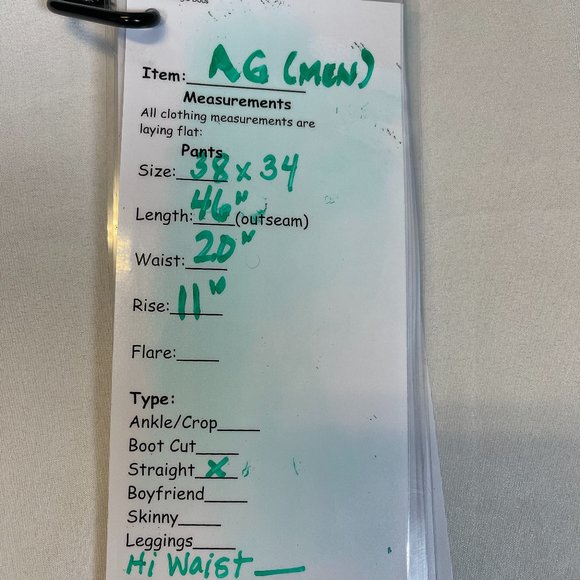 Item: AG (MEN)
Measurements
All clothing measurements are
laying flat:
Pants
Size: 38 x 34
Length: 46" (outseam)
Waist: 20"
Rise: 11"
Flare:
Type:
Ankle/Crop
Boot Cut
Straight X
Boyfriend
Skinny
Leggings
Hi Waist